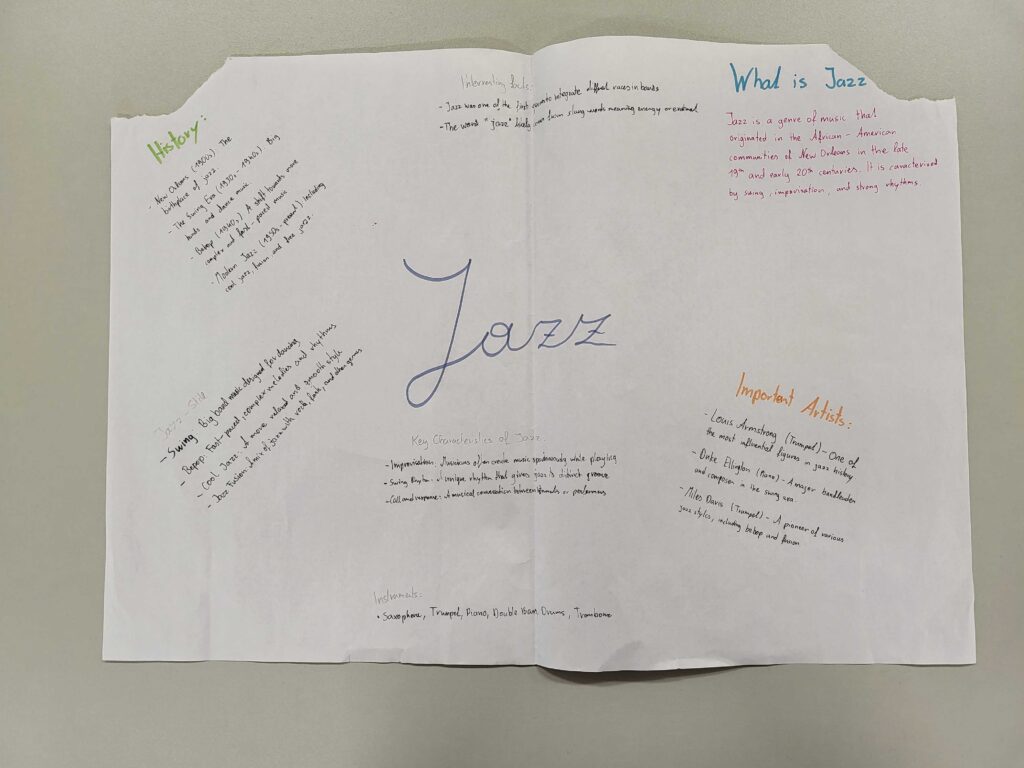 Interesting facts:
- Jazz was one of the first to integrate different races in bands
- The word "jazz" likely from slang words meaning energy or
What is Jazz
Jazz is a genre of music that
originated in the African-American
communities of New Orleans in the late
19th and early 20th centuries. It is caracterized
by swing, improvisation, and strong rhythms.
History:
- New Orleans (1900s) The
birthplace of jazz.
- The Swing Era (1930s - 1940s) Big
bands and dance music
- Bebop (1940s) A shift towards more
complex and fast-paced music
- Modern Jazz (1950s - present) including
cool jazz, fusion and free jazz.
Jazz
Jazz -
- Swing Big band music designed for dancing
- Bepop: Fast-paced, complex melodies and rhythms
- Cool Jazz: A more relaxed and smooth style
- Jazz Fusion: A mix of jazz with rock, funk, and other genres
Important Artists:
- Louis Armstrong (Trumpet) - One of
the most influential figures in jazz history
- Duke Ellington (Piano) - A major bandleader
and composer in the swing era
- Miles Davis (Trumpet) - A pioneer of various
jazz styles, including bebop and fusion
Key Characteristics of Jazz:
- Improvisation: Musicians often create music spontaneously while playing
- Swing Rhythm: A unique rhythm that gives jazz its distinct groove
- Call and response: A musical conversation between or performers
Instruments:
• Saxophone, Trumpet, Piano, Double Bass, Drums, Trombone